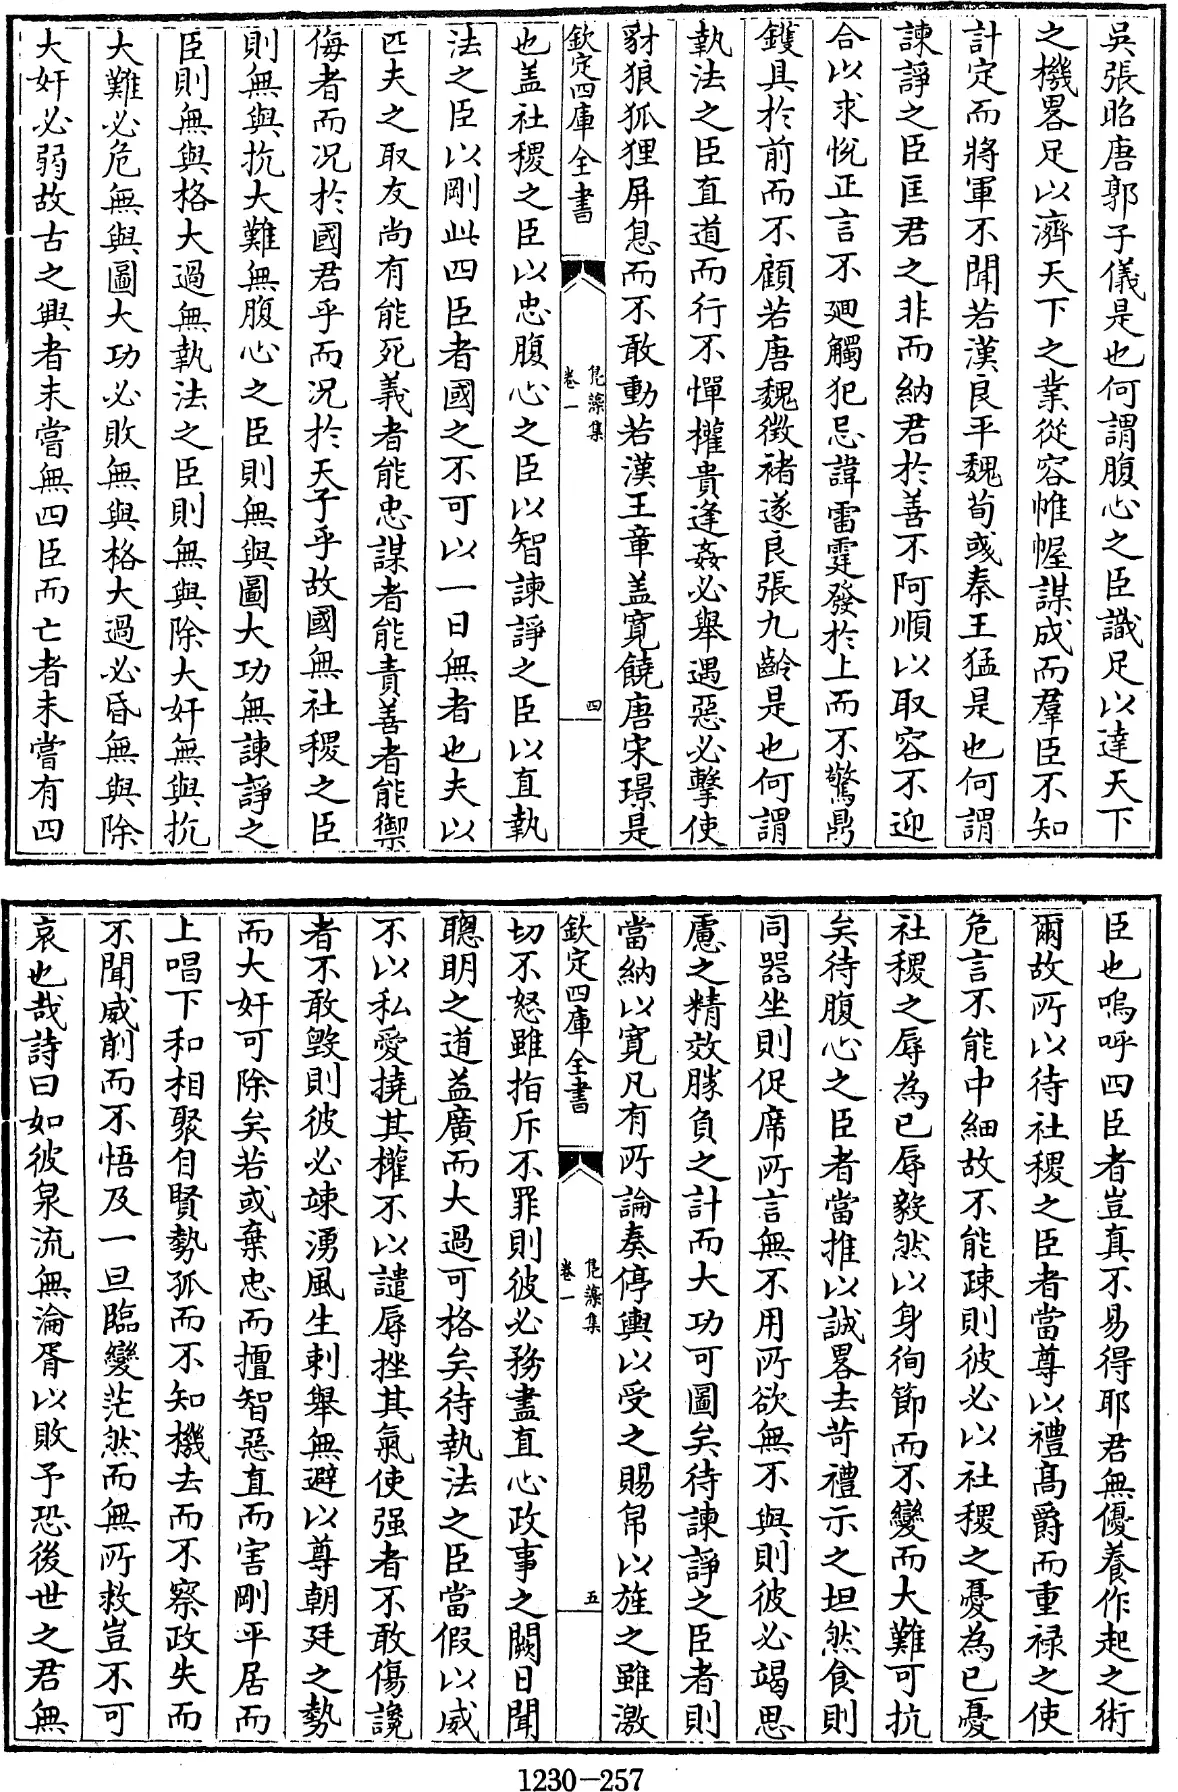 吳張昭唐郭子儀是也何謂腹心之臣識足以達天下
之機畧足以濟天下之業從容帷幄謀成而羣臣不知
計定而將軍不聞若漢良平魏荀彧秦王猛是也何謂
諫諍之臣匡君之非而納君於善不阿順以取容不迎
合以求悅正言不廻觸犯忌諱雷霆發於上而不驚鼎
鑊具於前而不顧若唐魏徴褚遂良張九齡是也何謂
執法之臣直道而行不憚權貴逢姦必舉遇惡必擊使
豺狼狐狸屏息而不敢動若漢王章盖寛饒唐宋璟是
欽定四庫全書
鳧藻集
卷一
四
也盖社稷之臣以忠腹心之臣以智諫諍之臣以直執
法之臣以剛此四臣者國之不可以一日無者也夫以
匹夫之取友尚有能死義者能忠謀者能責善者能禦
侮者而况於國君乎而况於天子乎故國無社稷之臣
則無與抗大難無腹心之臣則無與圖大功無諫諍之
臣則無與格大過無執法之臣則無與除大奸無與抗
大難必危無與圖大功必敗無與格大過必昏無與除
大奸必弱故古之興者未嘗無四臣而亡者未嘗有四
臣也嗚呼四臣者豈真不易得耶君無優養作起之術
爾故所以待社稷之臣者當尊以禮高爵而重禄之使
危言不能中細故不能疎則彼必以社稷之憂為已憂
社稷之辱為已辱毅然以身徇節而不變而大難可抗
矣待腹心之臣者當推以誠畧去苛禮示之坦然食則
同器坐則促席所言無不用所欲無不與則彼必竭思
慮之精效勝負之計而大功可圖矣待諫諍之臣者則
當納以寛凡有所論奏停輿以受之賜帛以旌之雖激
欽定四庫全書
鳧藻集
卷一
五
切不怒雖指斥不罪則彼必務盡直心政事之闕日聞
聰明之道益廣而大過可格矣待執法之臣當假以威
不以私愛撓其權不以譴辱挫其氣使强者不敢傷讒
者不敢毁則彼必竦湧風生剌舉無避以尊朝廷之勢
而大奸可除矣若或棄忠而擅智惡直而害剛平居而
上唱下和相聚自賢勢孤而不知機去而不察政失而
不聞威削而不悟及一旦臨變茫然而無所救豈不可
哀也哉詩曰如彼泉流無淪胥以敗予恐後世之君無
1230-257